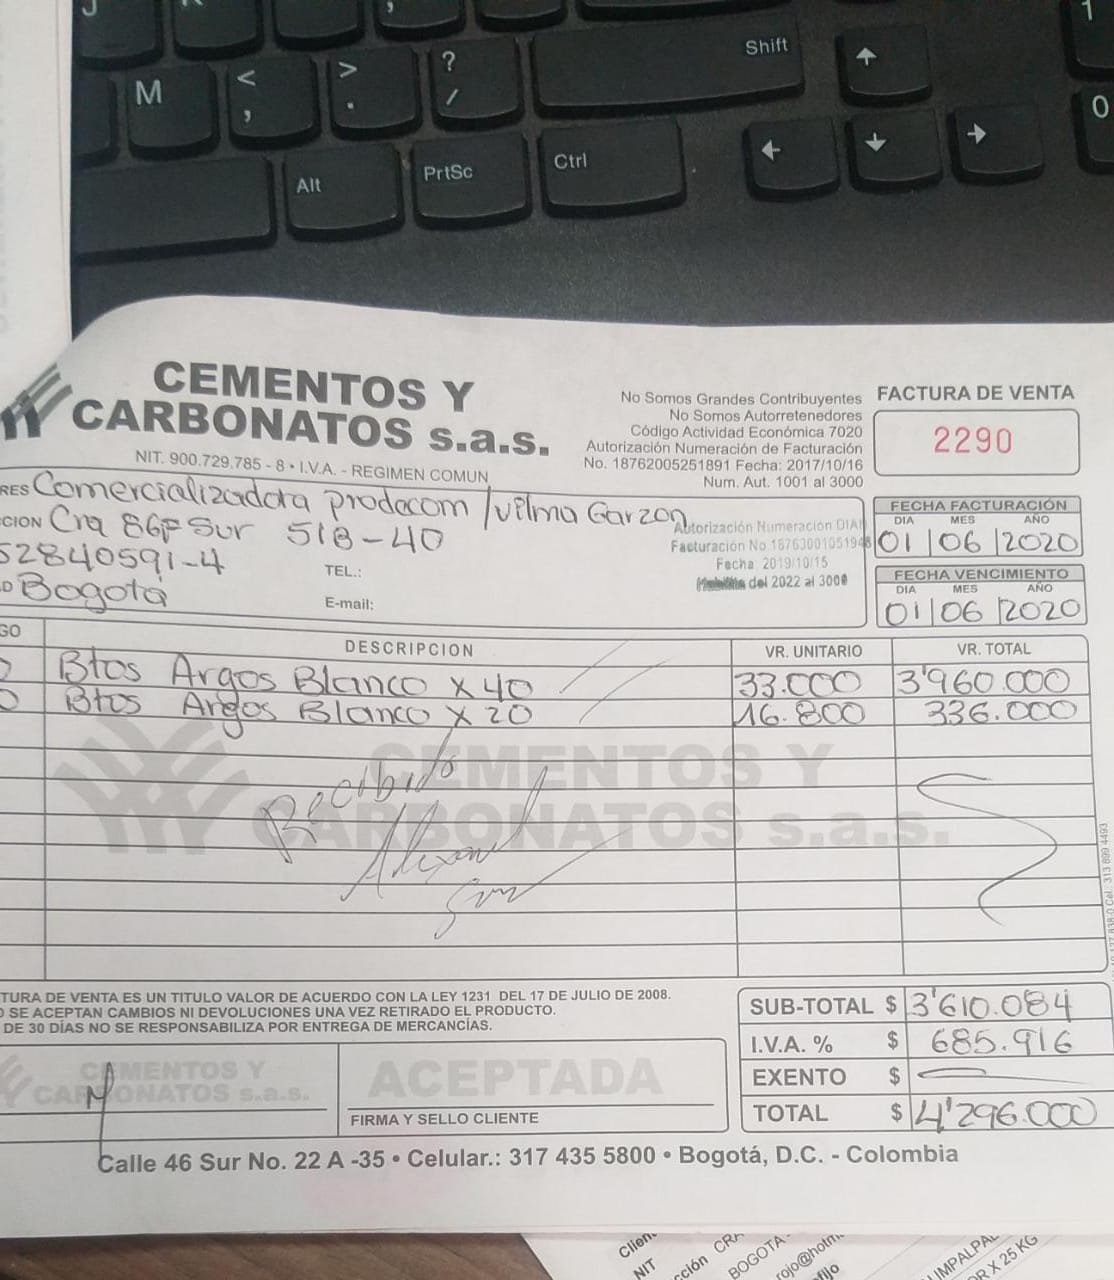 J
M
<
,
>
.
?
/
Shift
1
0
Alt
PrtSc
Ctrl
CEMENTOS Y
CARBONATOS s.a.s.
NIT. 900.729.785 - 8 • I.V.A. - REGIMEN COMUN
No Somos Grandes Contribuyentes
No Somos Autorretenedores
Código Actividad Económica 7020
Autorización Numeración de Facturación
No. 18762005251891 Fecha: 2017/10/16
Num. Aut. 1001 al 3000
FACTURA DE VENTA
2290
RES Comercializadora prodecom / vilma Garzon
CION Cra 86F Sur 51B-40
52840591-4
TEL.:
O Bogotá
E-mail:
Autorización Numeración DIAN
Facturación No 18763001051948
Fecha: 2019/10/15
del 2022 al 3000
FECHA FACTURACIÓN
DIA MES AÑO
01 06 2020
FECHA VENCIMIENTO
DIA MES AÑO
01 06 2020
GO DESCRIPCION VR. UNITARIO VR. TOTAL
Btos Argos Blanco x 40 33.000 3'960.000
0 Btos Argos Blanco x 20 16.800 336.000
CEMENTOS Y
CARBONATOS s.a.s.
Recibido
Cel: 313 899 4493
TURA DE VENTA ES UN TITULO VALOR DE ACUERDO CON LA LEY 1231 DEL 17 DE JULIO DE 2008.
O SE ACEPTAN CAMBIOS NI DEVOLUCIONES UNA VEZ RETIRADO EL PRODUCTO.
DE 30 DÍAS NO SE RESPONSABILIZA POR ENTREGA DE MERCANCÍAS.
SUB-TOTAL $ 3'610.084
I.V.A. % $ 685.916
EXENTO $
TOTAL $ 4'296.000
CEMENTOS Y
CARBONATOS s.a.s.
ACEPTADA
FIRMA Y SELLO CLIENTE
Calle 46 Sur No. 22 A -35 • Celular.: 317 435 5800 • Bogotá, D.C. - Colombia
Clien
NIT
cción CRA
BOGOTA
rojo@hotm
fijo
IMPALPAL
OR X 25 KG